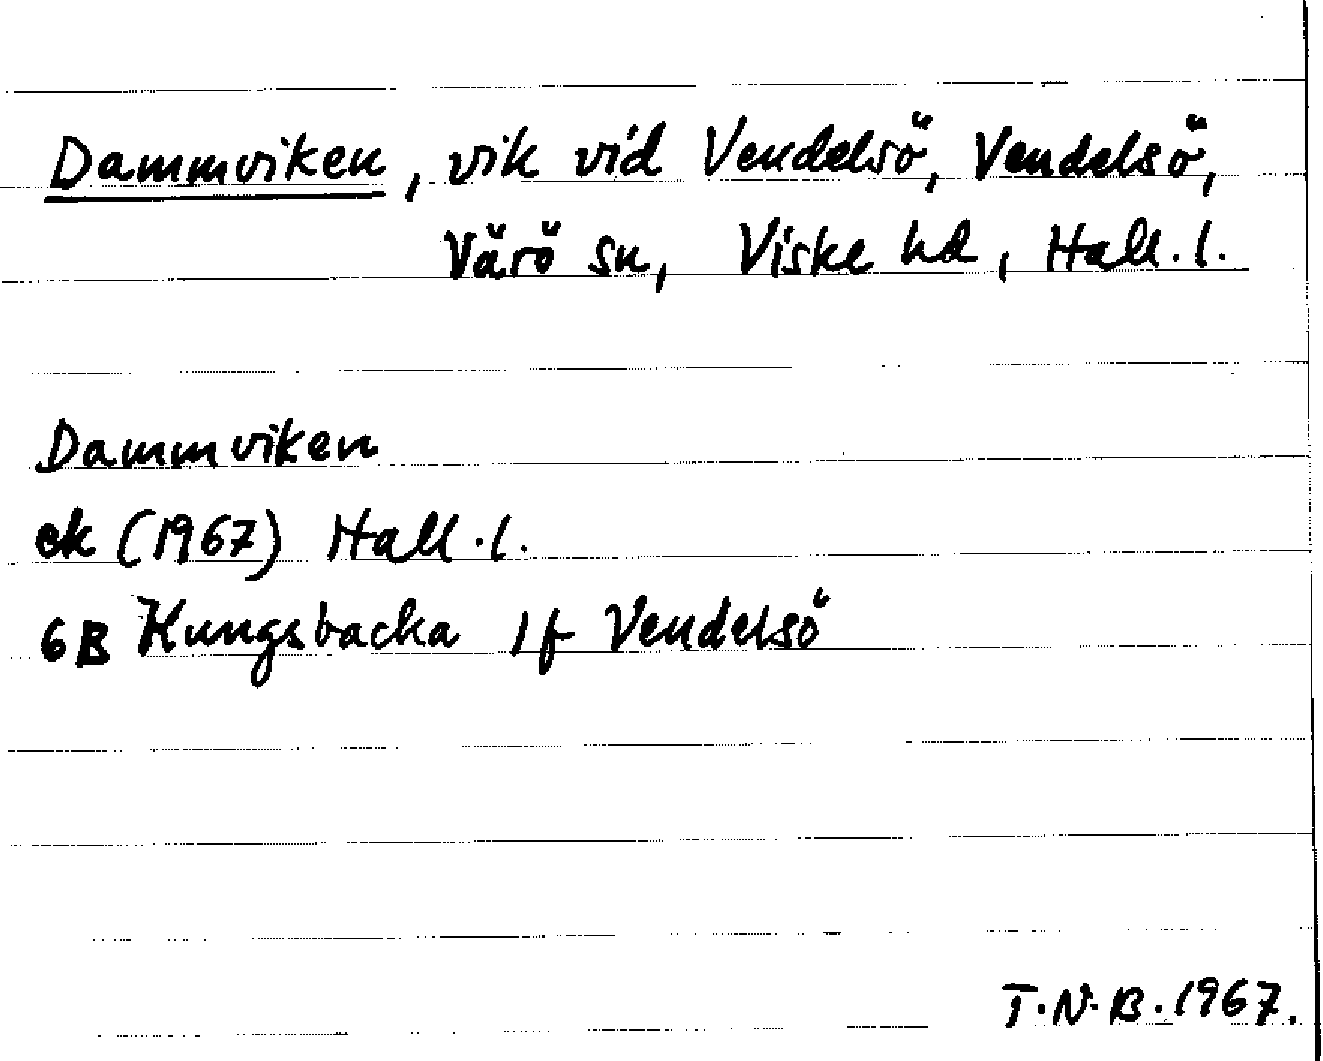 Dammviken, vik vid Vendelsö, Vendelsö,
Värö sn, Viske hd, Hall. l.
Dammviken
ek (1967) Hall. l.
6B Kungsbacka 1f Vendelsö
T.N.B. 1967.